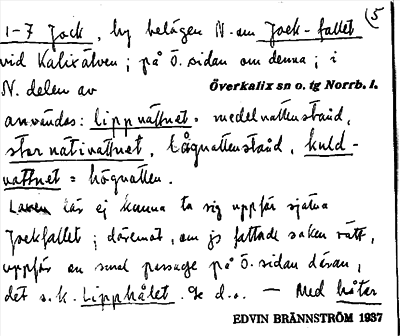 (5
1-7 Jock, by belägen N. om Jock-fallet
vid Kalixälven; på Ö. sidan om denna; i
N. delen av Överkalix sn o. tg Norrb. l.
användas: lippvattnet = medelvattenstånd,
stornativattnet, lågvattenstånd, kuld-
vattnet = högvatten.
Laxen lär ej kunna ta sig uppför själva
Jockfallet; däremot, om jg fattade saken rätt,
uppför en smal passage på Ö. sidan däran,
det s.k. Lipphålet. Se d.o. — Med håvar
EDVIN BRÄNNSTRÖM 1937